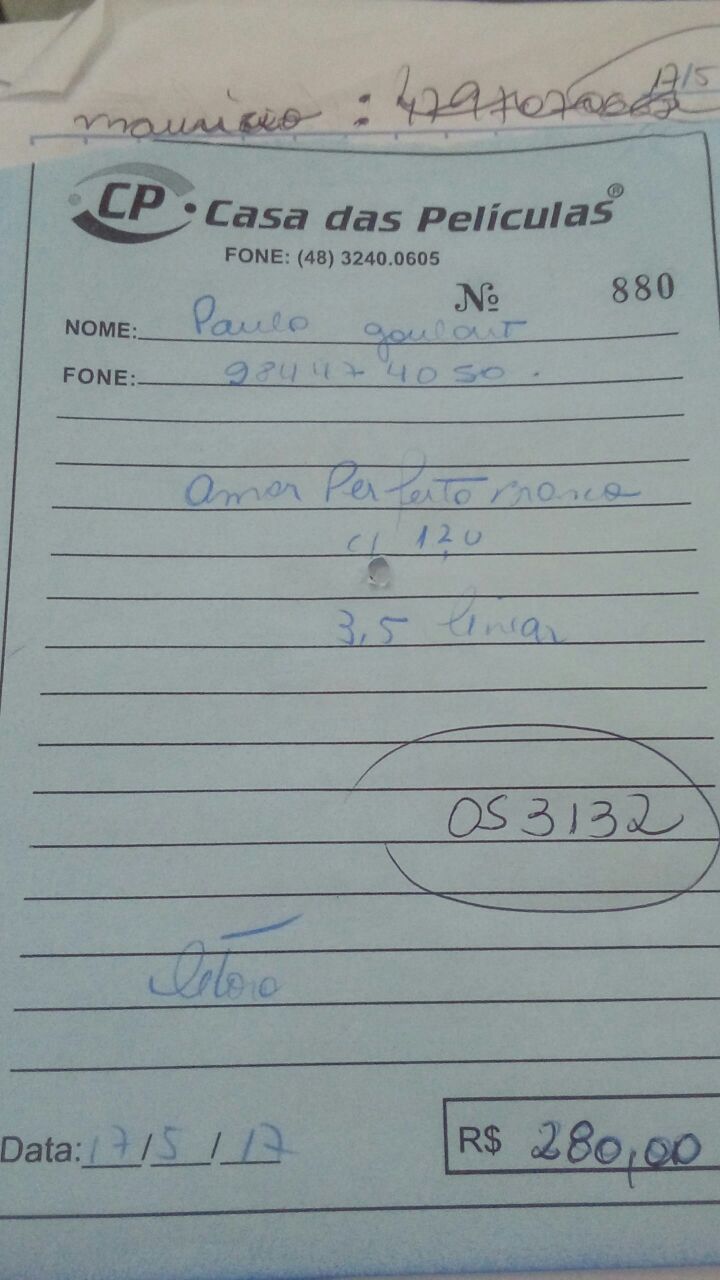 17/5
mauricio :
CP • Casa das Películas®
FONE: (48) 3240.0605
Nº 880
NOME: Paulo goulart
FONE: 984474050.
Amor Perfeito branco
c/ 1,20
3,5 linear
OS 3132
Data: 17/5/17
R$ 280,00